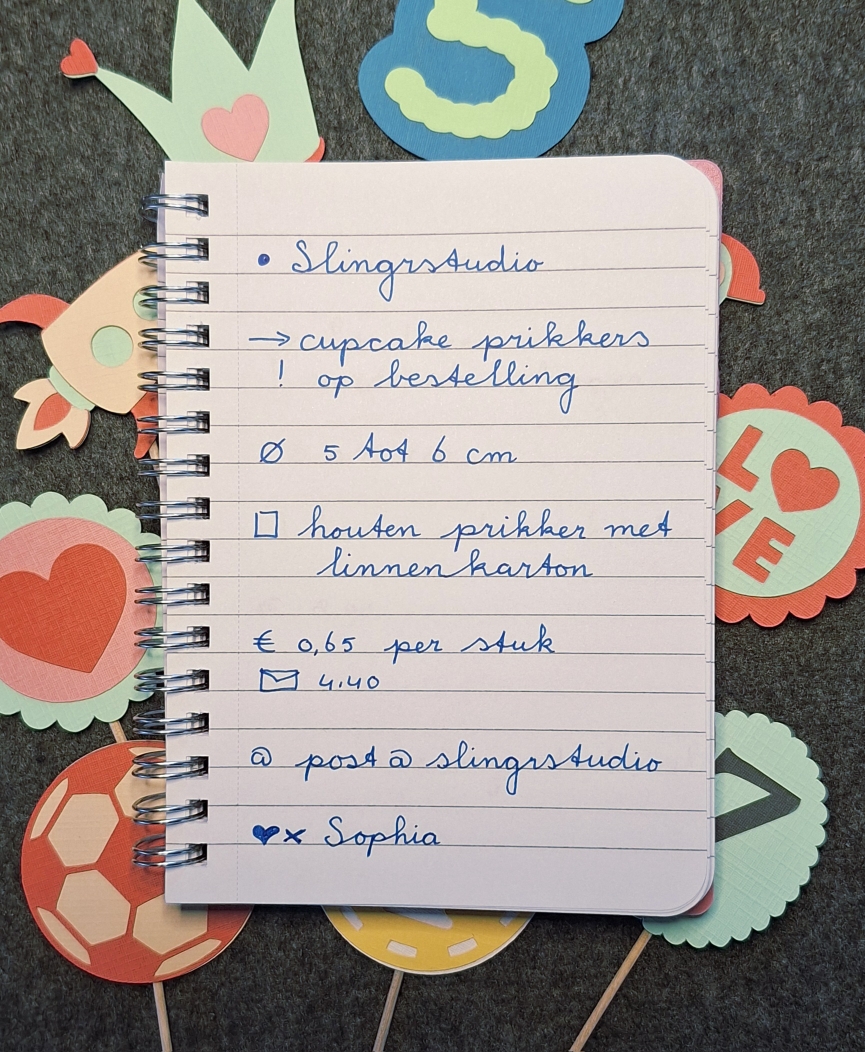 5
• Slingrstudio
→ cupcake prikkers
! op bestelling
Ø 5 tot 6 cm
□ houten prikker met
linnenkarton
€ 0,65 per stuk
✉ 4.40
@ post@slingrstudio
♥× Sophia
LO♥
VE
7